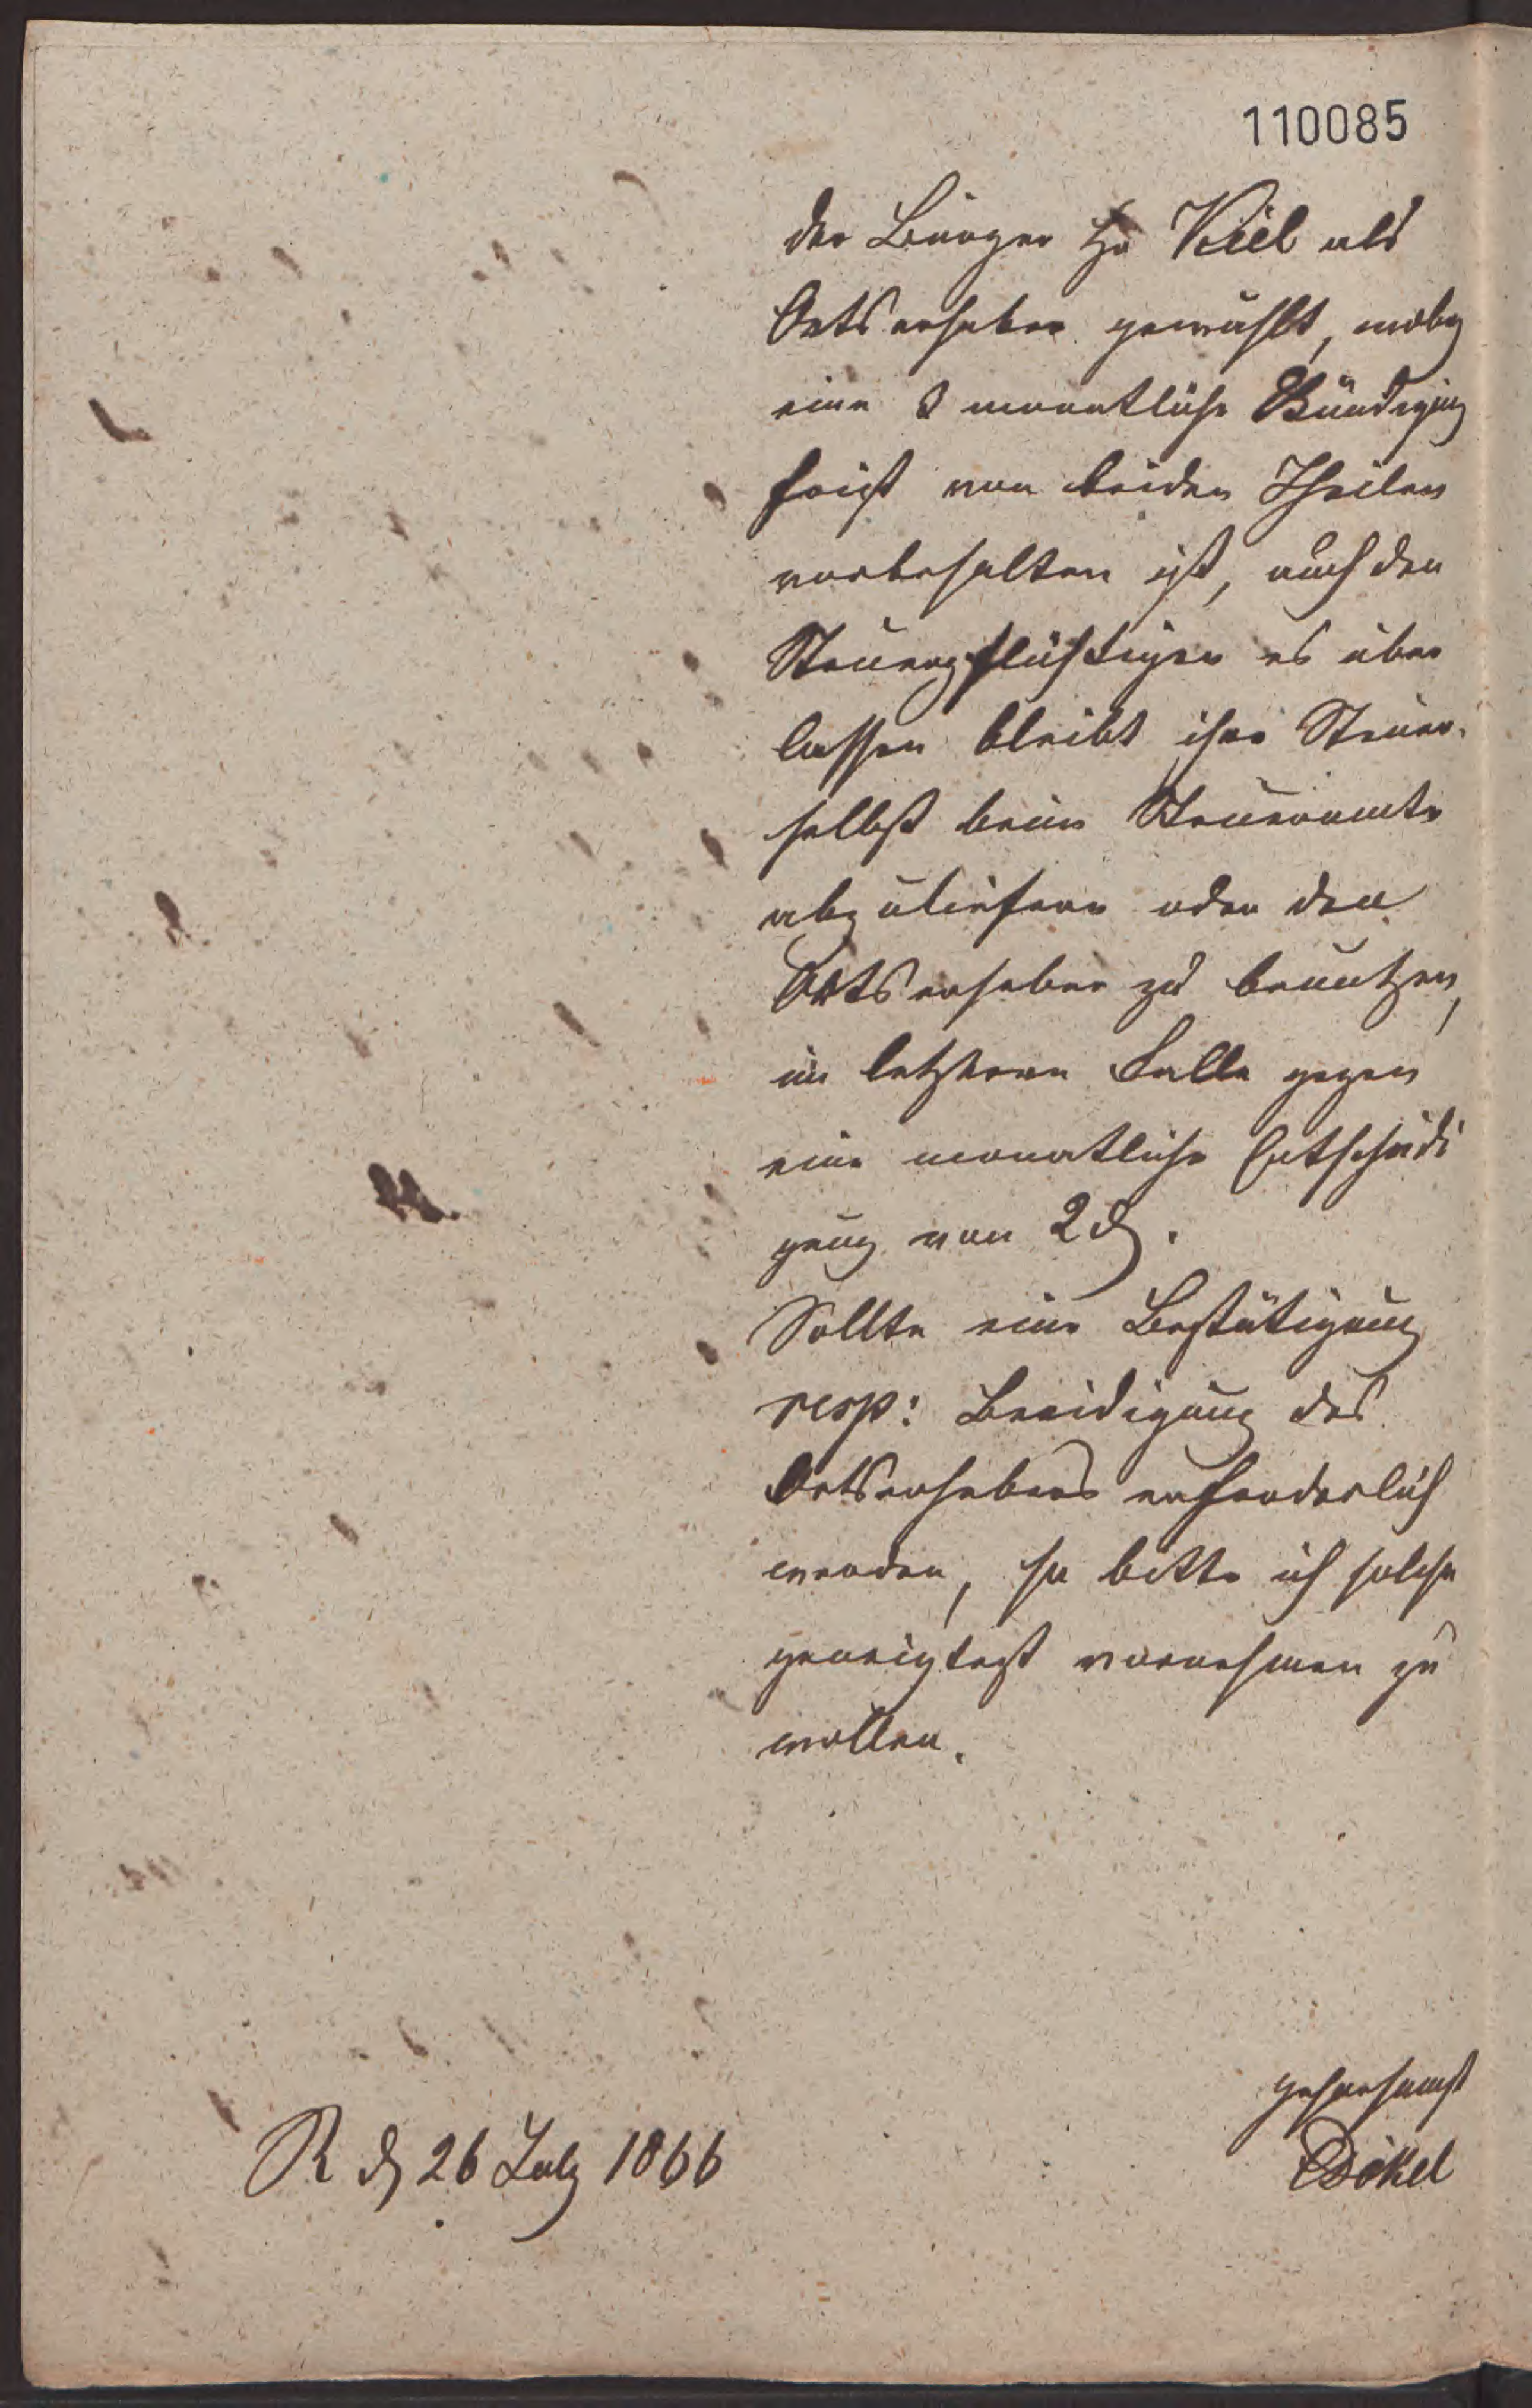 110085
der Bürger Hr Kiel als
Ortserheber gewählt, wobey
eine 3 monatliche Kündigung
frist von beiden Theilen
vorbehalten ist, auch den
Steuerpflichtigen es über
lassen bleibt ihre Steuer
selbst beim Steueramte
abzuliefern oder den
Ortserheber zu benutzen,
im letztern Falle gegen
eine monatliche Entschädi
gung von 2 ₰.
Sollte eine Bestätigung
resp: Beeidigung des
Ortserhebers erforderlich
werden, so bitte ich solche
geneigtest vornehmen zu
wollen.
gehorsamst
R d 26 July 1866
Dökel